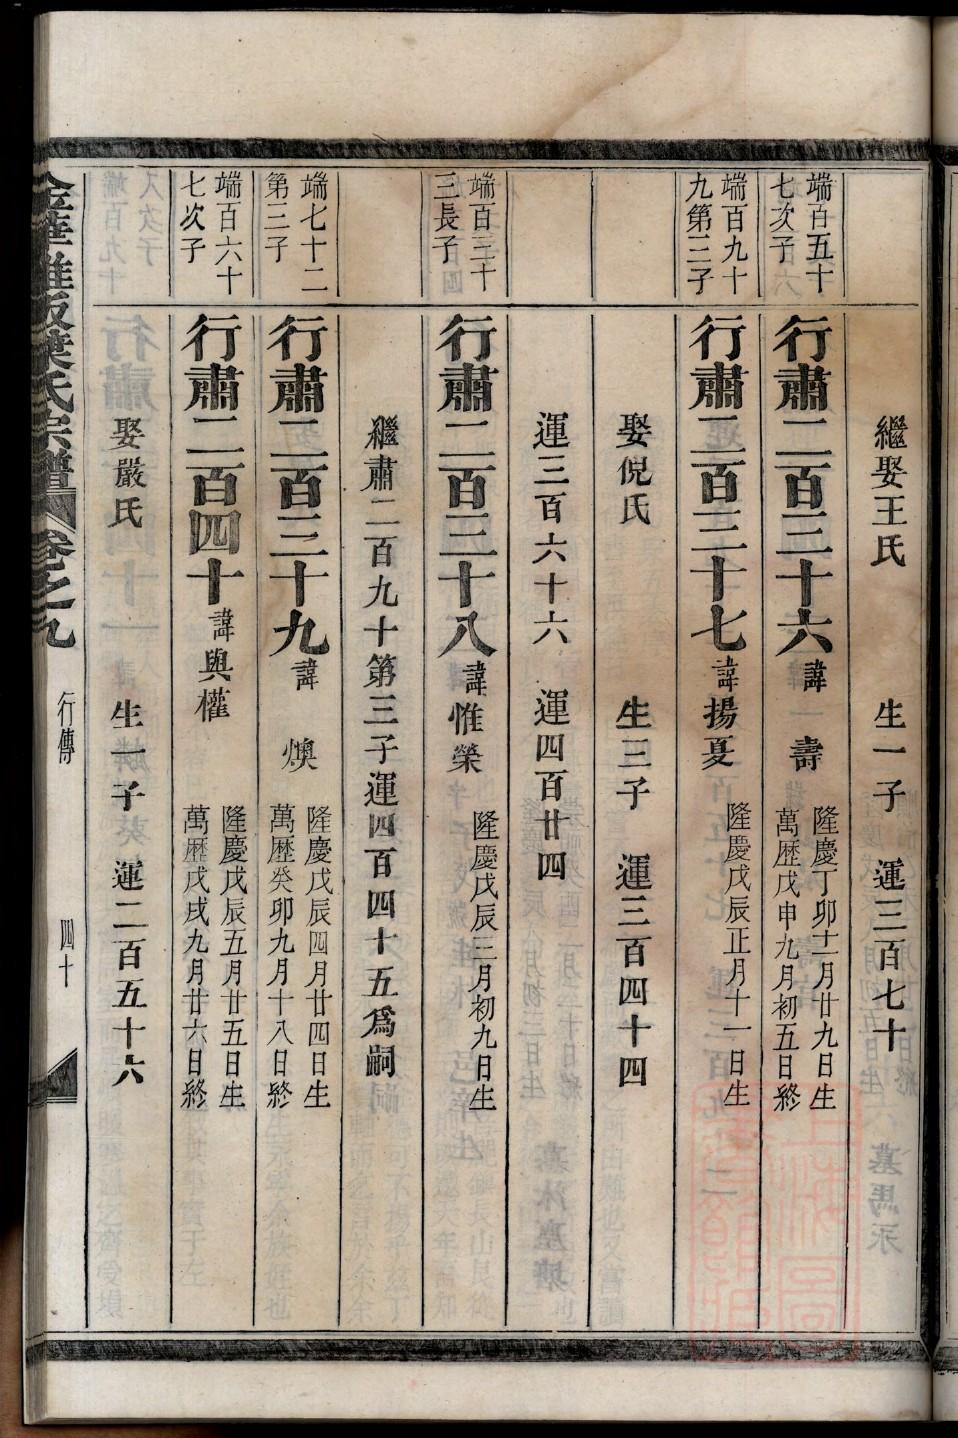 繼娶王氏　生一子　運三百七十
端百五十
七次子
行肅二百三十六諱一壽
隆慶丁卯十一月廿九日生
萬歷戊申九月初五日終
端百九十
九第三子
行肅二百三十七諱揚夏
隆慶戊辰正月十一日生
娶倪氏　生三子　運三百四十四
運三百六十六　運四百廿四
端百三十
三長子
行肅二百三十八諱惟榮
隆慶戊辰三月初九日生
繼肅二百九十第三子運四百四十五爲嗣
端七十二
第三子
行肅二百三十九諱　燠
隆慶戊辰四月廿四日生
萬歷癸卯九月十八日終
端百六十
七次子
行肅二百四十諱與權
隆慶戊辰五月廿五日生
萬歷戊戌九月廿六日終
娶嚴氏　生一子　運二百五十六
葉氏宗譜　卷之九　行傳　四十